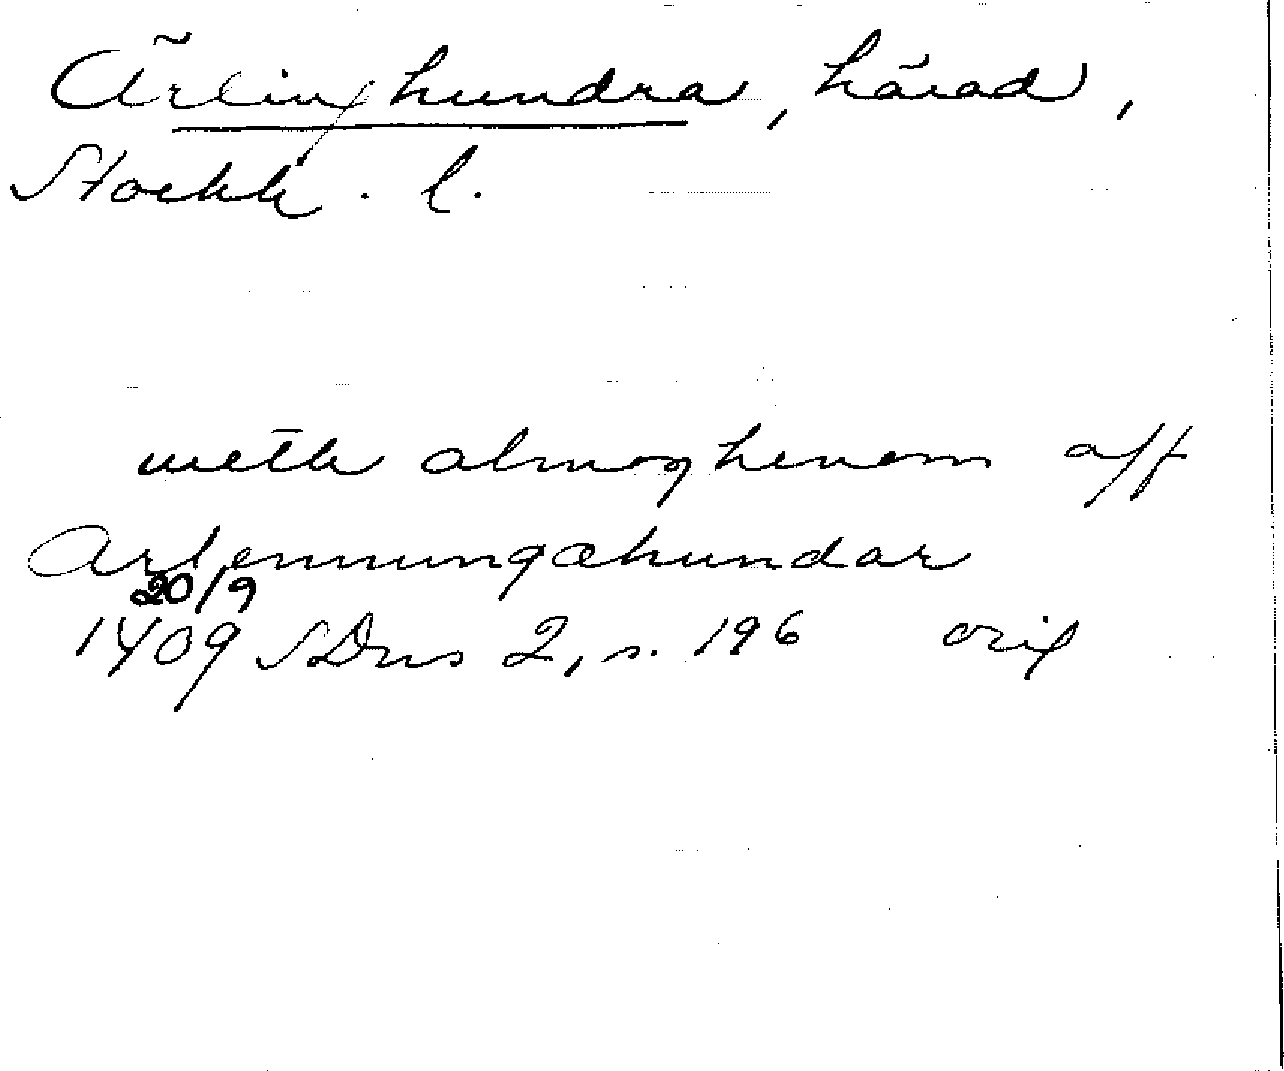 Ärlinghundra, härad,
Stockh. l.
meth almoghenom aff
Arlenningæhundar
20/9
1409 SDns 2, s. 196 orig